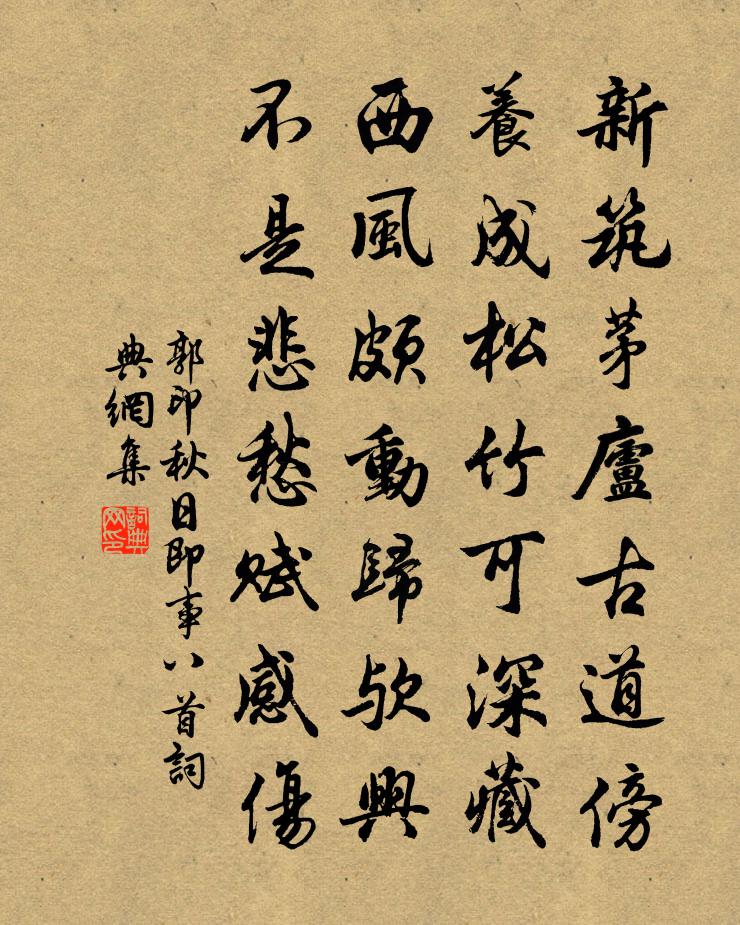 新筑茅廬古道傍
養成松竹可深藏
西風頗動歸欤興
不是悲愁賦感傷
郭印秋日即事八首詞
典網集
詞典
网印